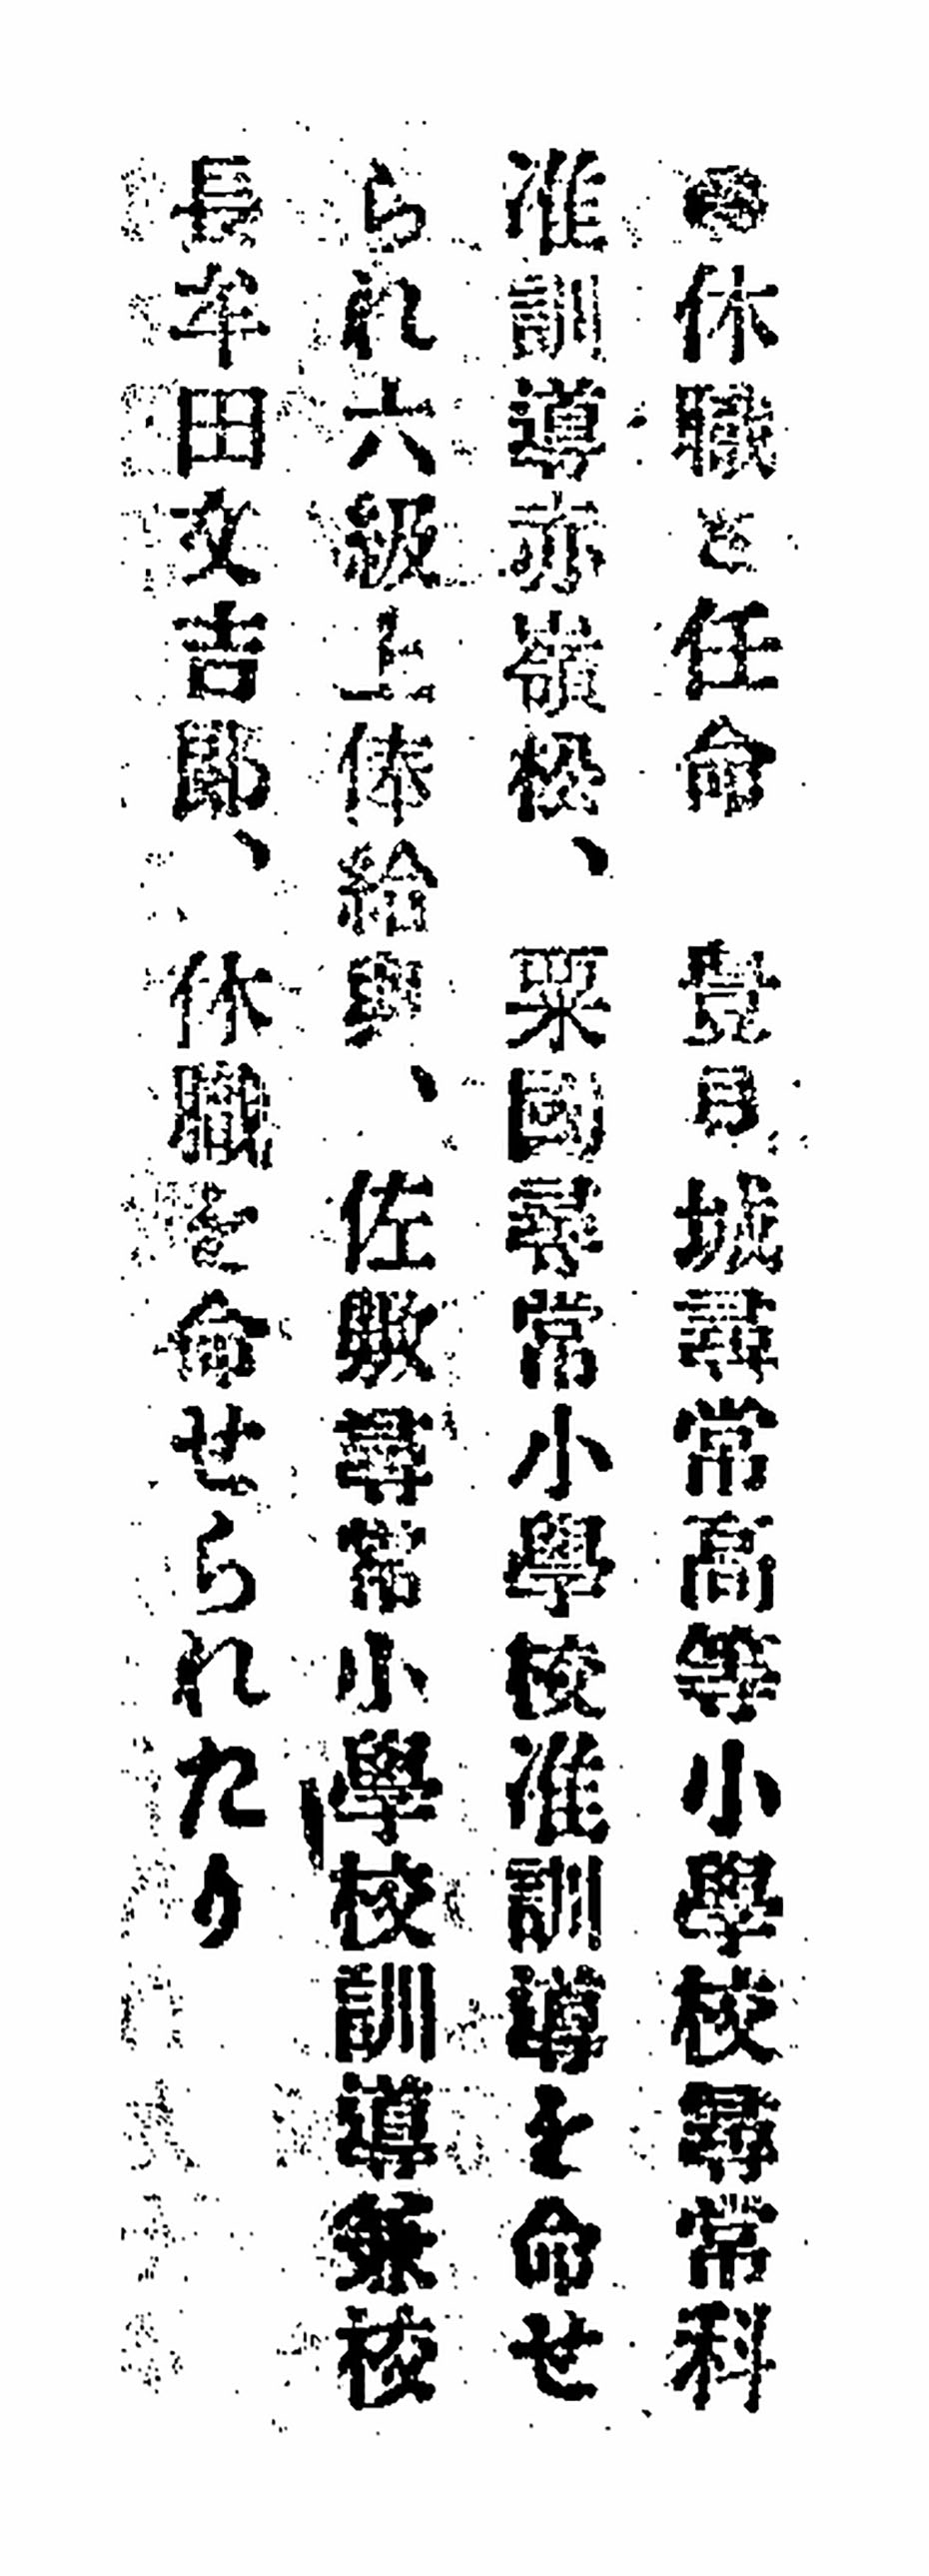 ◉休職と任命　豊見城尋常高等小學校尋常科
准訓導赤嶺松、粟國尋常小學校准訓導を命せ
られ六級上俸給與、佐敷尋常小學校訓導兼校
長牟田文吉郎、休職を命せられたり